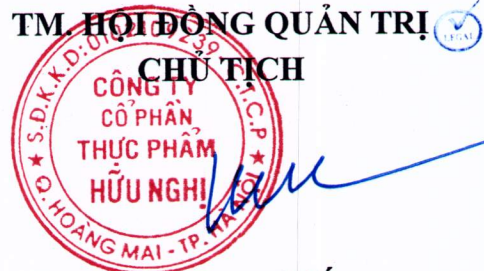 TM. HỘI ĐỒNG QUẢN TRỊ
LEGAL
CHỦ TỊCH
CÔNG TY
CỔ PHẦN
THỰC PHẨM
HỮU NGHỊ
Q. HOÀNG MAI - TP. HÀ NỘI